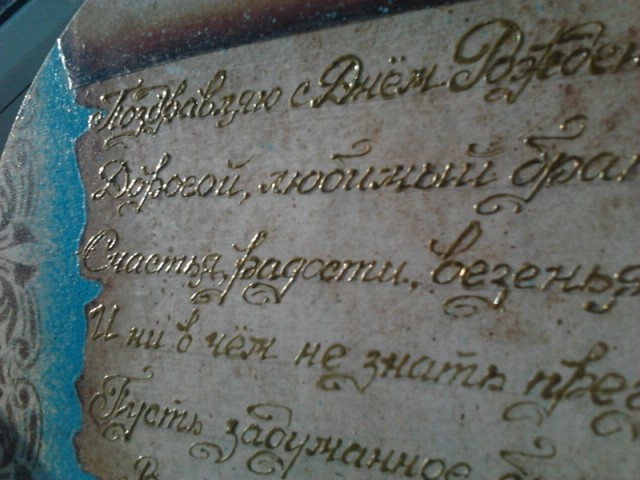 Поздравляю с Днём Рожден
Дорогой, любимый бра
Счастья, радости, везенья
И ни в чём не знать пре
Пусть задуманное
В